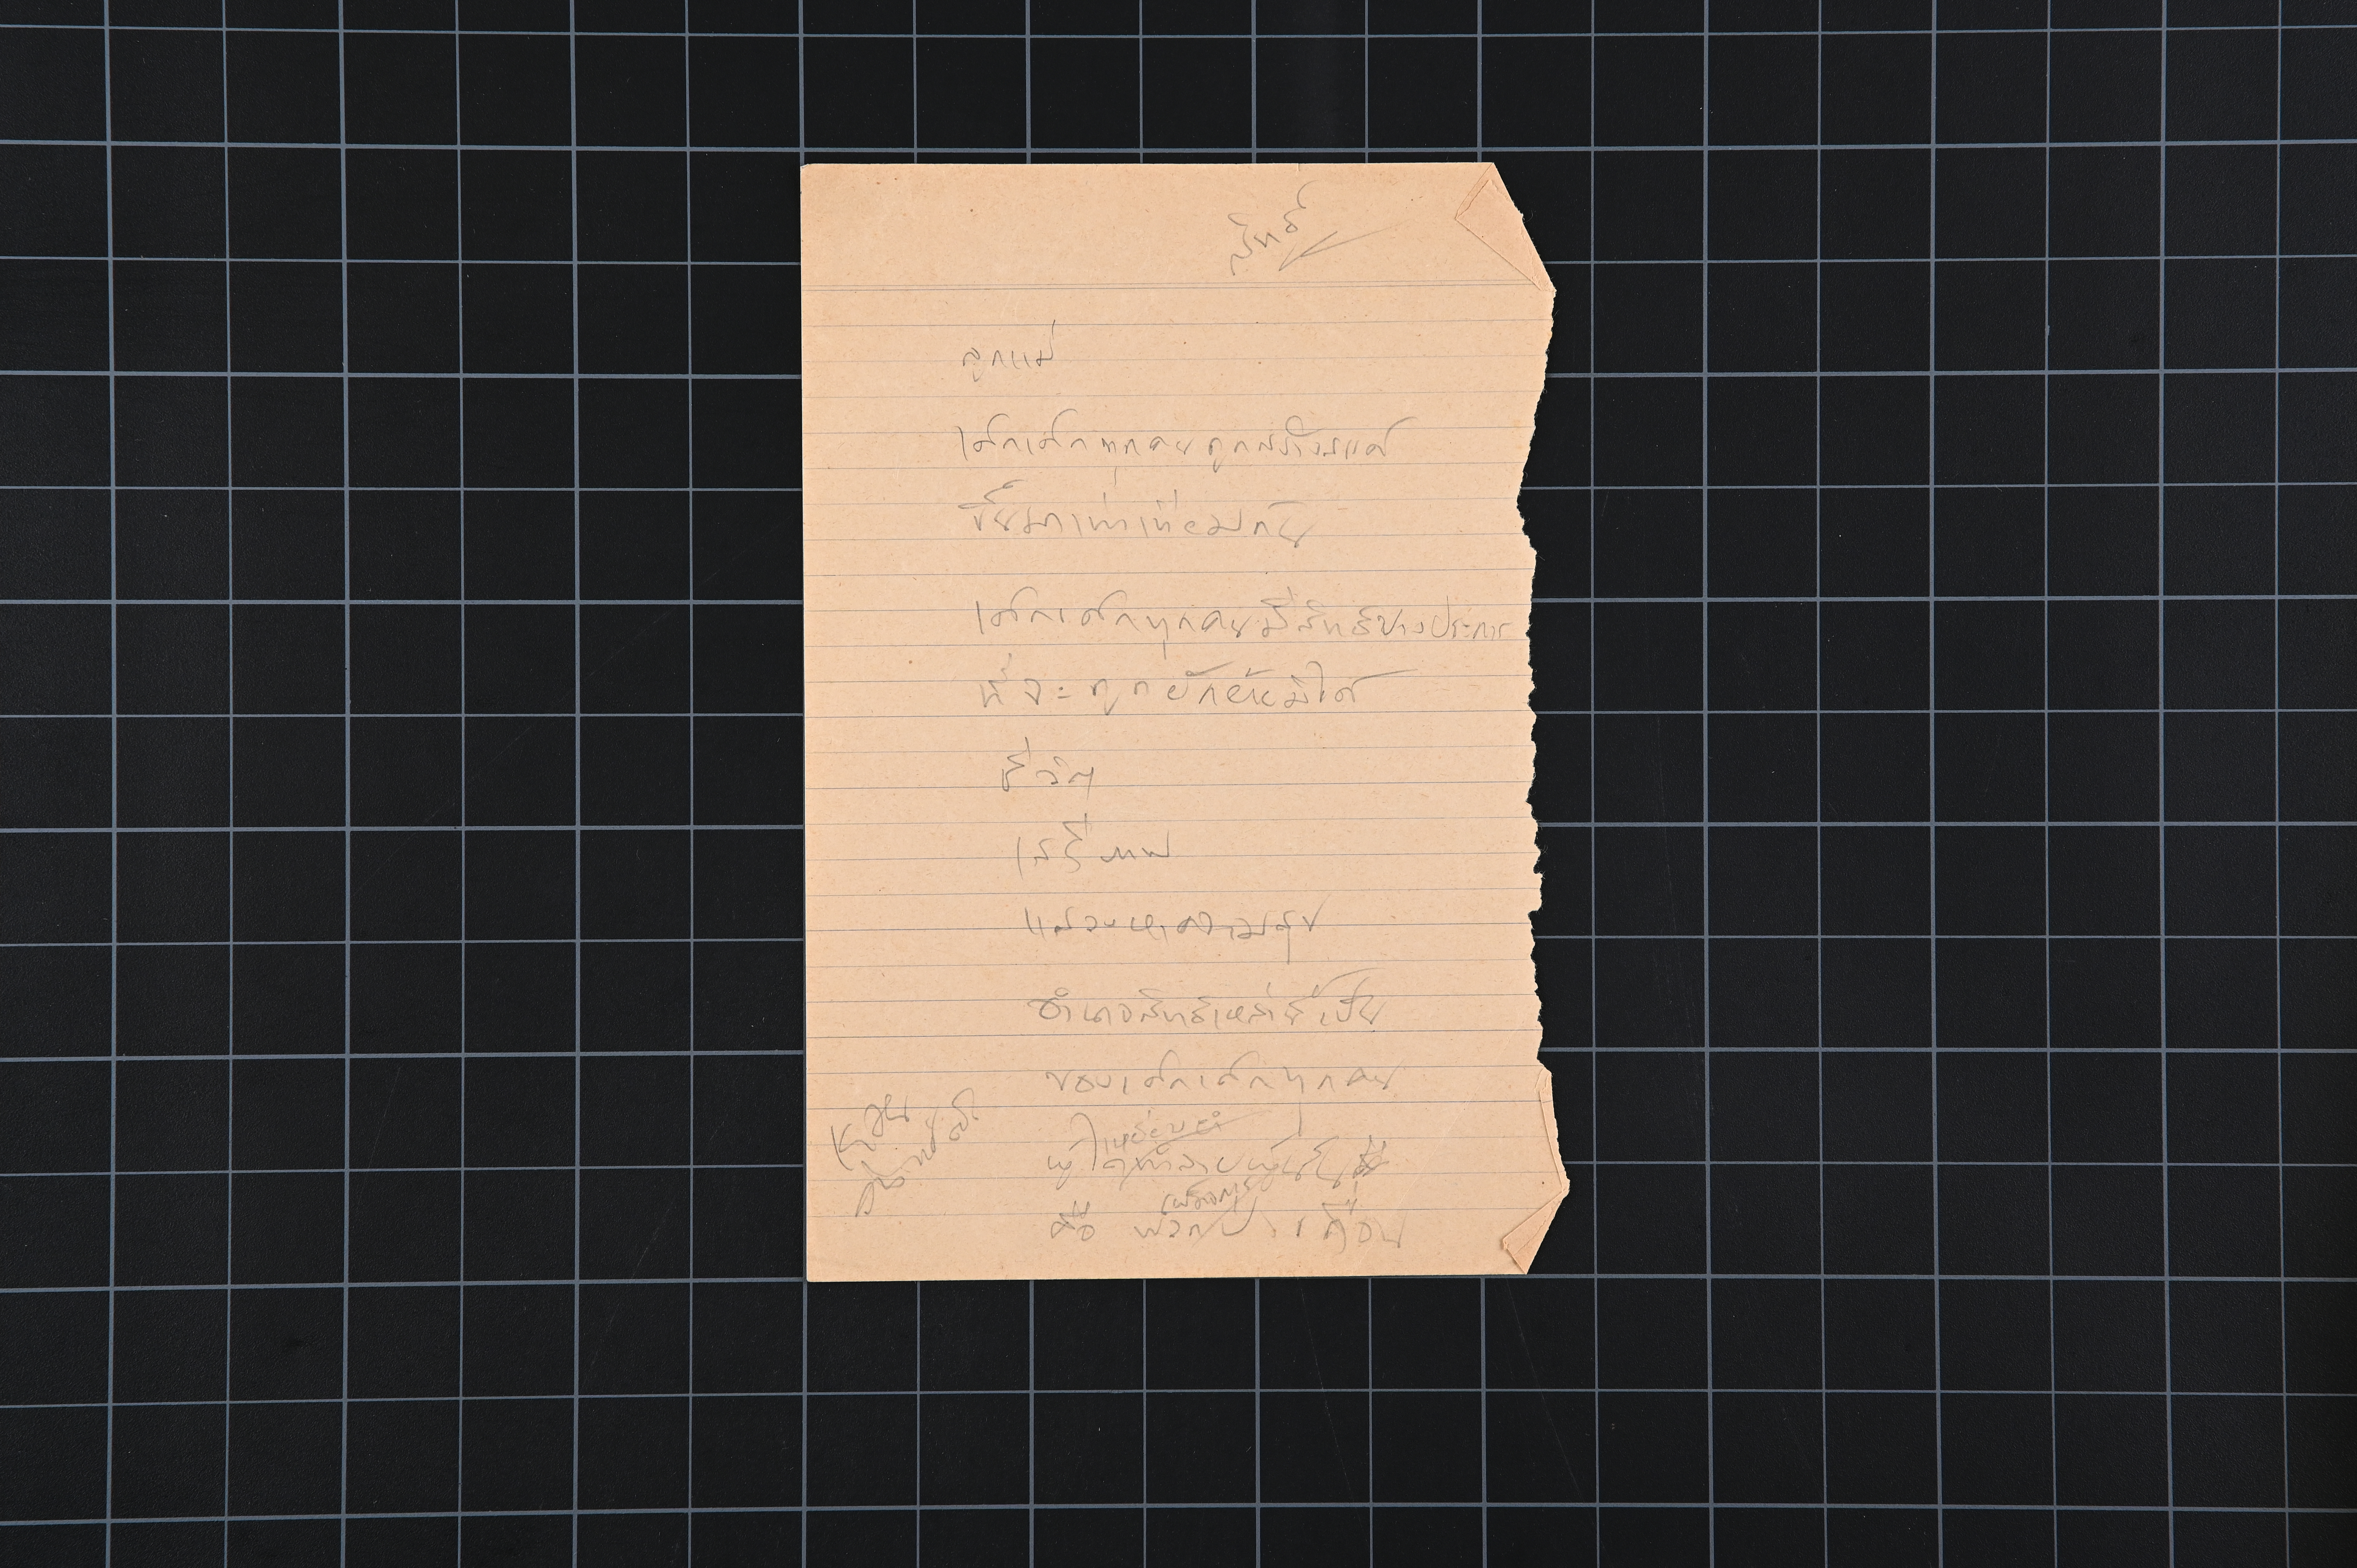 สิทธิ
ลูกแม่
เด็กเด็กทุกคนถูกสร้างแต่
ขึ้นมาเท่าเทียมกัน
เด็กเด็กทุกคนมีสิทธิบางประการ
ที่จะถูกยักย้ายมิได้
ชีวิต
เสรีภาพ
แสวงหาความสุข
อำนาจสิทธิเหล่านี้เป็น
ของเด็กเด็กทุกคน
เหยียบย่ำ
ผู้ใดทำลายผู้นั้น
เผด็จการ
คือ พวกป่าเถื่อน